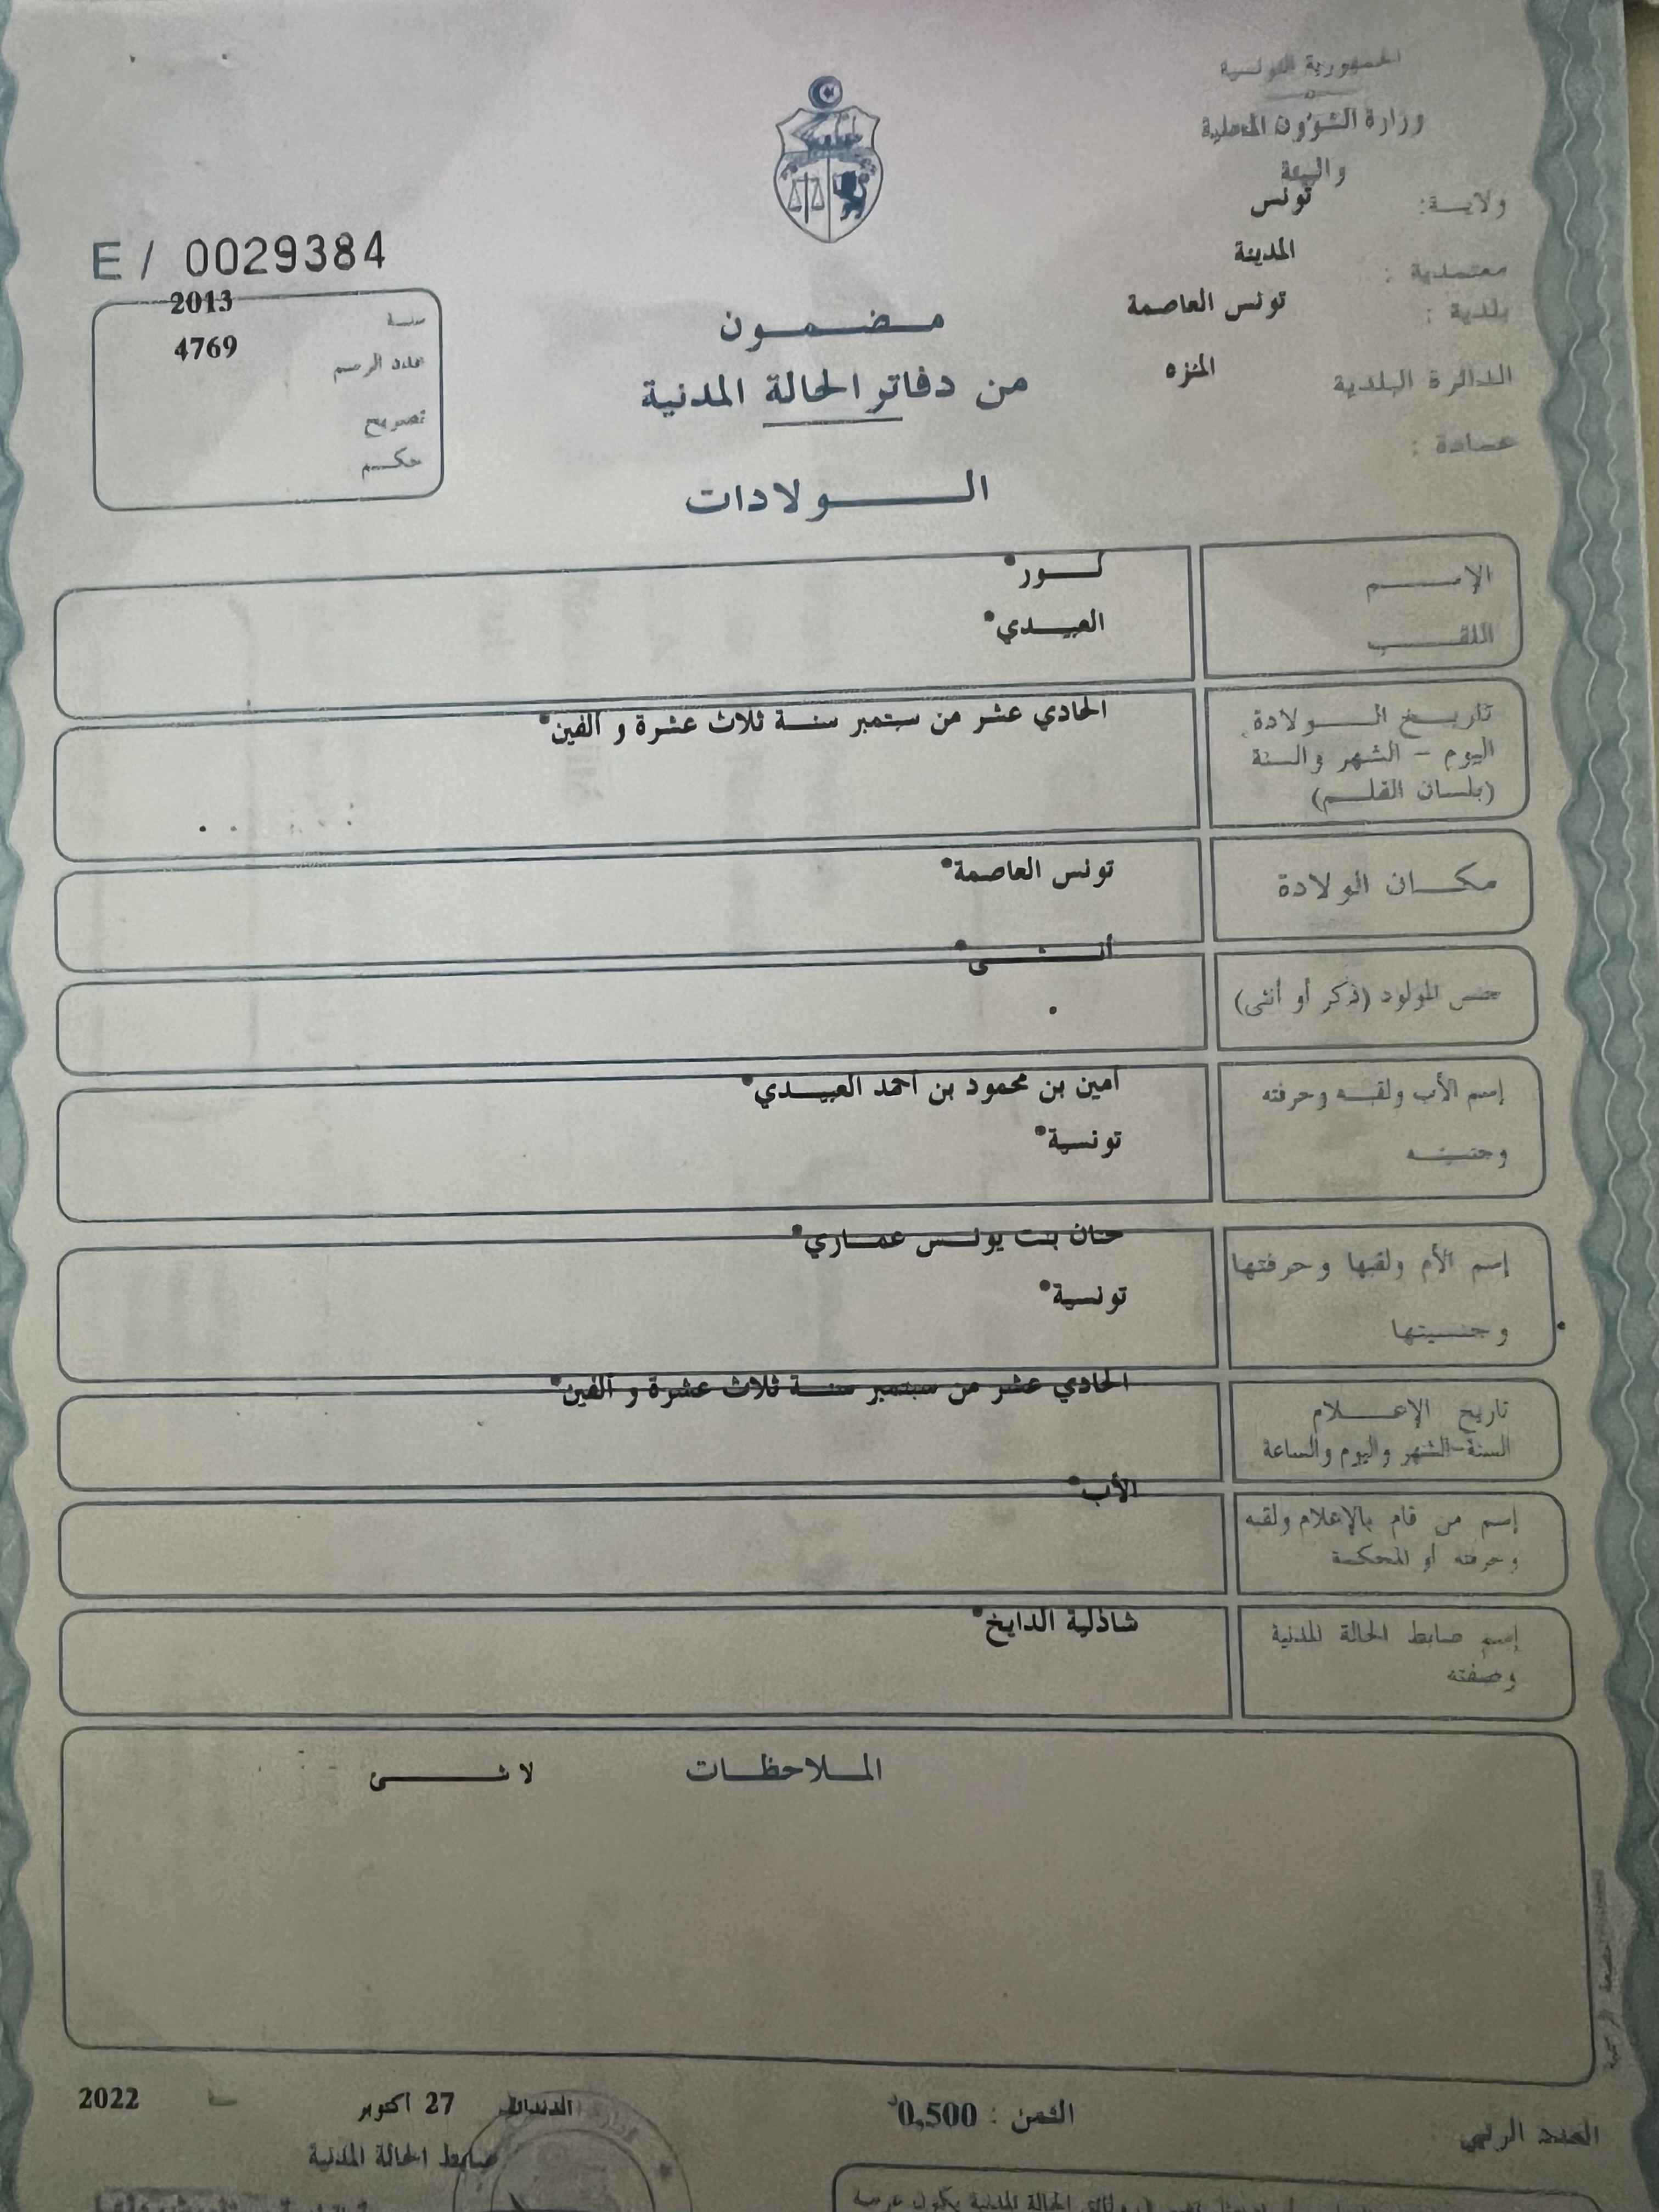 الجمهورية التونسية
وزارة الشؤون المحلية
والبيئة
ولاية: تونس
معتمدية : المدينة
بلدية : تونس العاصمة
الدائرة البلدية المنزه
عمادة :
E / 0029384
سنة 2013
عدد الرسم 4769
تصريح
حكم
مضمون
من دفاتر الحالة المدنية
الولادات
الإسم
اللقب العبيدي
تاريخ الولادة الحادي عشر من سبتمبر سنة ثلاث عشرة و ألفين
اليوم - الشهر والسنة
(بلسان القلم)
مكان الولادة تونس العاصمة
جنس المولود (ذكر أو أنثى) أنثى
إسم الأب ولقبه وحرفته أمين بن محمود بن أحمد العبيدي
وجنسيته تونسية
إسم الأم ولقبها وحرفتها حنان بنت يونس عماري
وجنسيتها تونسية
تاريخ الإعلام الحادي عشر من سبتمبر سنة ثلاث عشرة و ألفين
السنة-الشهر واليوم والساعة
إسم من قام بالإعلام ولقبه الأب
وحرفته أو المحكمة
إسم ضابط الحالة المدنية شاذلية الدايخ
وصفته
الملاحظات لا شئ
الثمن : 0,500د
27 أكتوبر 2022
ضابط الحالة المدنية